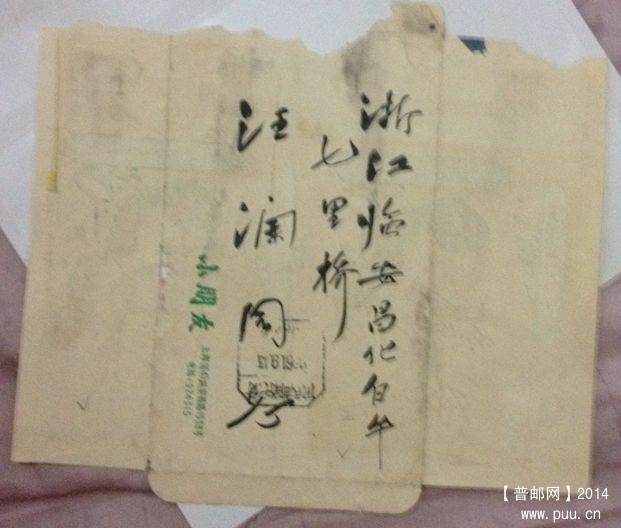 浙江临安昌化白牛
七里桥
汪澜阁
小朋友
【普邮网】2014
www.puu.cn